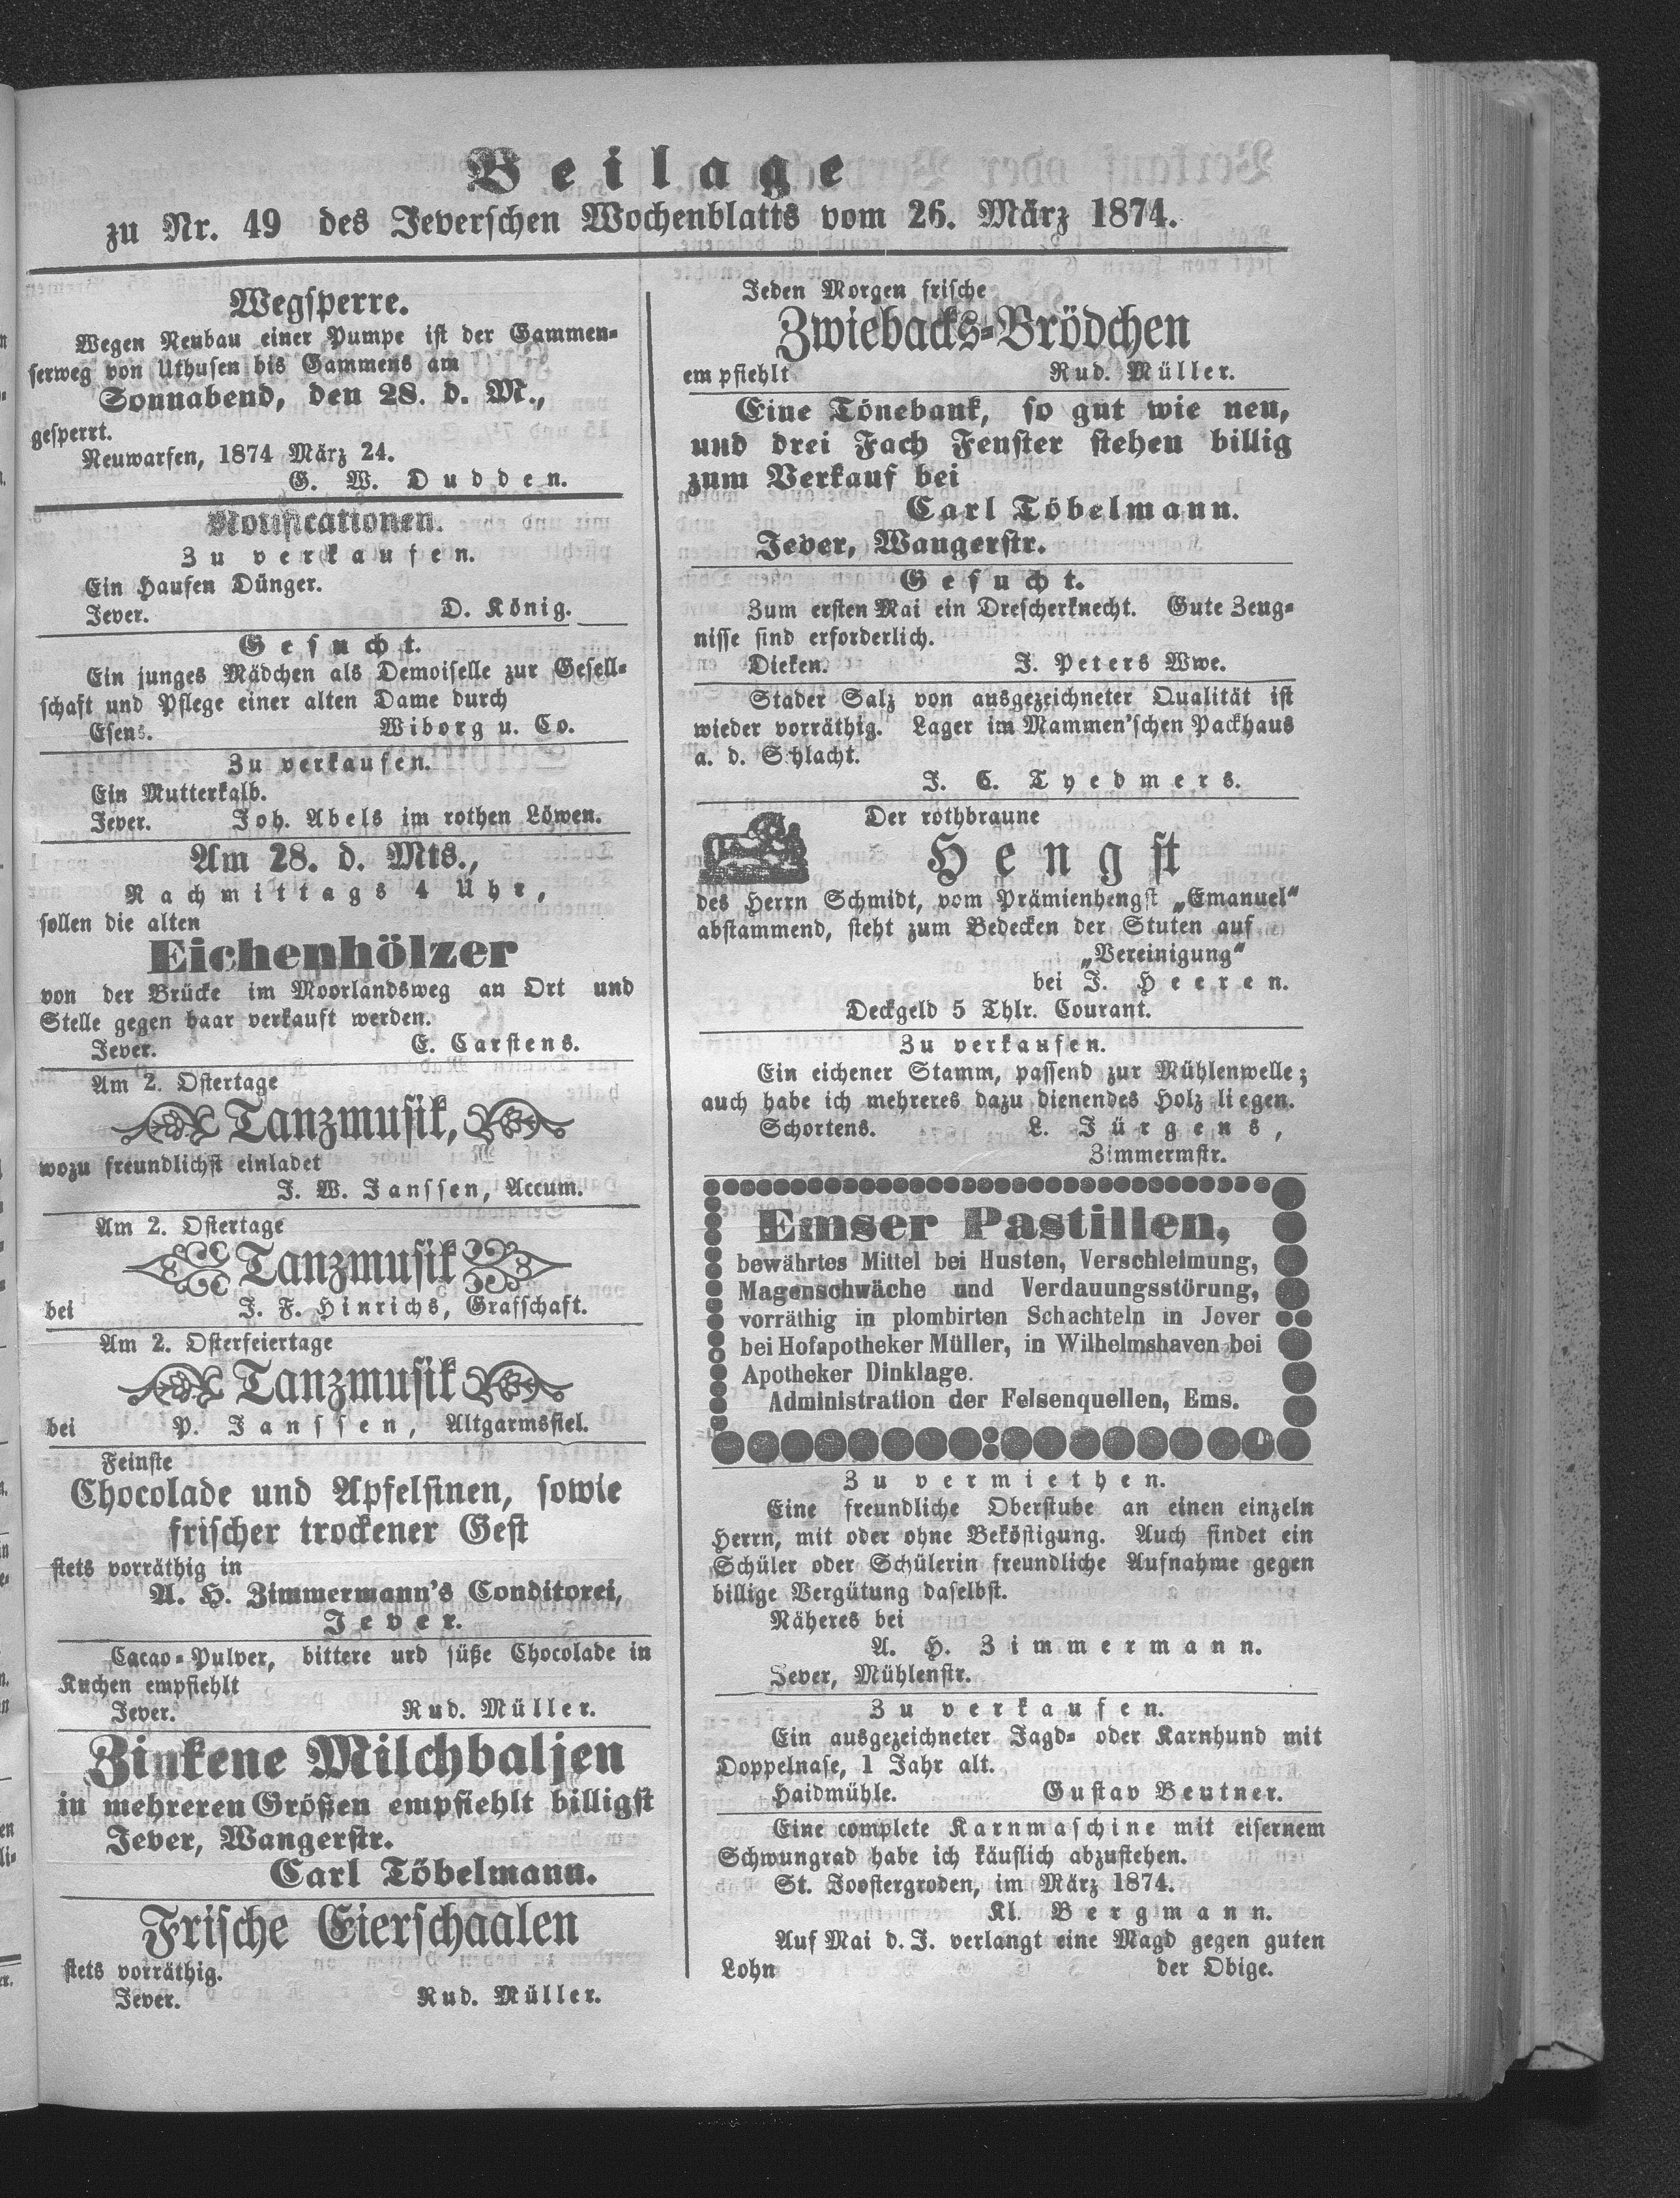 Beilage
zu Nr. 49 des Jeverschen Wochenblatts vom 26. März 1874.
Wegsperre.
Wegen Neubau einer Pumpe ist der Gammen-
serweg von Uthusen bis Gammens am
Sonnabend, den 28. d. M.,
gesperrt.
Neuwarfen, 1874 März 24.
G. W. Dudden.
Notificationen.
Zu verkaufen.
Ein Haufen Dünger.
Jever. D. König.
Gesucht.
Ein junges Mädchen als Demoiselle zur Gesell-
schaft und Pflege einer alten Dame durch
Esens. Wiborg u. Co.
Zu verkaufen.
Ein Mutterkalb.
Jever. Joh. Abels im rothen Löwen.
Am 28. d. Mts.,
Nachmittags 4 Uhr,
sollen die alten
Eichenhölzer
von der Brücke im Moorlandsweg an Ort und
Stelle gegen baar verkauft werden.
Jever. E. Carstens.
Am 2. Ostertage
Tanzmusik,
wozu freundlichst einladet
J. W. Janssen, Accum.
Am 2. Ostertage
Tanzmusik
bei J. F. Hinrichs, Grafschaft.
Am 2. Osterfeiertage
Tanzmusik
bei P. Janssen, Altgarmssiel.
Feinste
Chocolade und Apfelsinen, sowie
frischer trockener Gest
stets vorräthig in
A. H. Zimmermann's Conditorei,
Jever.
Cacao-Pulver, bittere urd süße Chocolade in
Kuchen empfiehlt
Jever. Rud. Müller.
Zinkene Milchbaljen
in mehreren Größen empfiehlt billigst
Jever, Wangerstr.
Carl Töbelmann.
Frische Eierschaalen
stets vorräthig.
Jever. Rud. Müller.
Jeden Morgen frische
Zwiebacks-Brödchen
empfiehlt Rud. Müller.
Eine Tönebank, so gut wie neu,
und drei Fach Fenster stehen billig
zum Verkauf bei
Carl Töbelmann.
Jever, Wangerstr.
Gesucht.
Zum ersten Mai ein Drescherknecht. Gute Zeug-
nisse sind erforderlich.
Dieken. J. Peters Wwe.
Stader Salz von ausgezeichneter Qualität ist
wieder vorräthig. Lager im Mammen'schen Packhaus
a. d. Schlacht.
J. C. Tyedmers.
Der rothbraune
Hengst
des Herrn Schmidt, vom Prämienhengst „Emanuel“
abstammend, steht zum Bedecken der Stuten auf
„Vereinigung“
bei J. Heeren.
Deckgeld 5 Thlr. Courant.
Zu verkaufen.
Ein eichener Stamm, passend zur Mühlenwelle;
auch habe ich mehreres dazu dienendes Holz liegen.
Schortens. L. Jürgens,
Zimmermstr.
Emser Pastillen,
bewährtes Mittel bei Husten, Verschleimung,
Magenschwäche und Verdauungsstörung,
vorräthig in plombirten Schachteln in Jever
bei Hofapotheker Müller, in Wilhelmshaven bei
Apotheker Dinklage.
Administration der Felsenquellen, Ems.
Zu vermiethen.
Eine freundliche Oberstube an einen einzeln
Herrn, mit oder ohne Beköstigung. Auch findet ein
Schüler oder Schülerin freundliche Aufnahme gegen
billige Vergütung daselbst.
Näheres bei
A. H. Zimmermann.
Jever, Mühlenstr.
Zu verkaufen.
Ein ausgezeichneter Jagd- oder Karnhund mit
Doppelnase, 1 Jahr alt.
Haidmühle. Gustav Beutner.
Eine complete Karnmaschine mit eisernem
Schwungrad habe ich käuflich abzustehen.
St. Joostergroden, im März 1874.
Kl. Bergmann.
Auf Mai d. J. verlangt eine Magd gegen guten
Lohn der Obige.